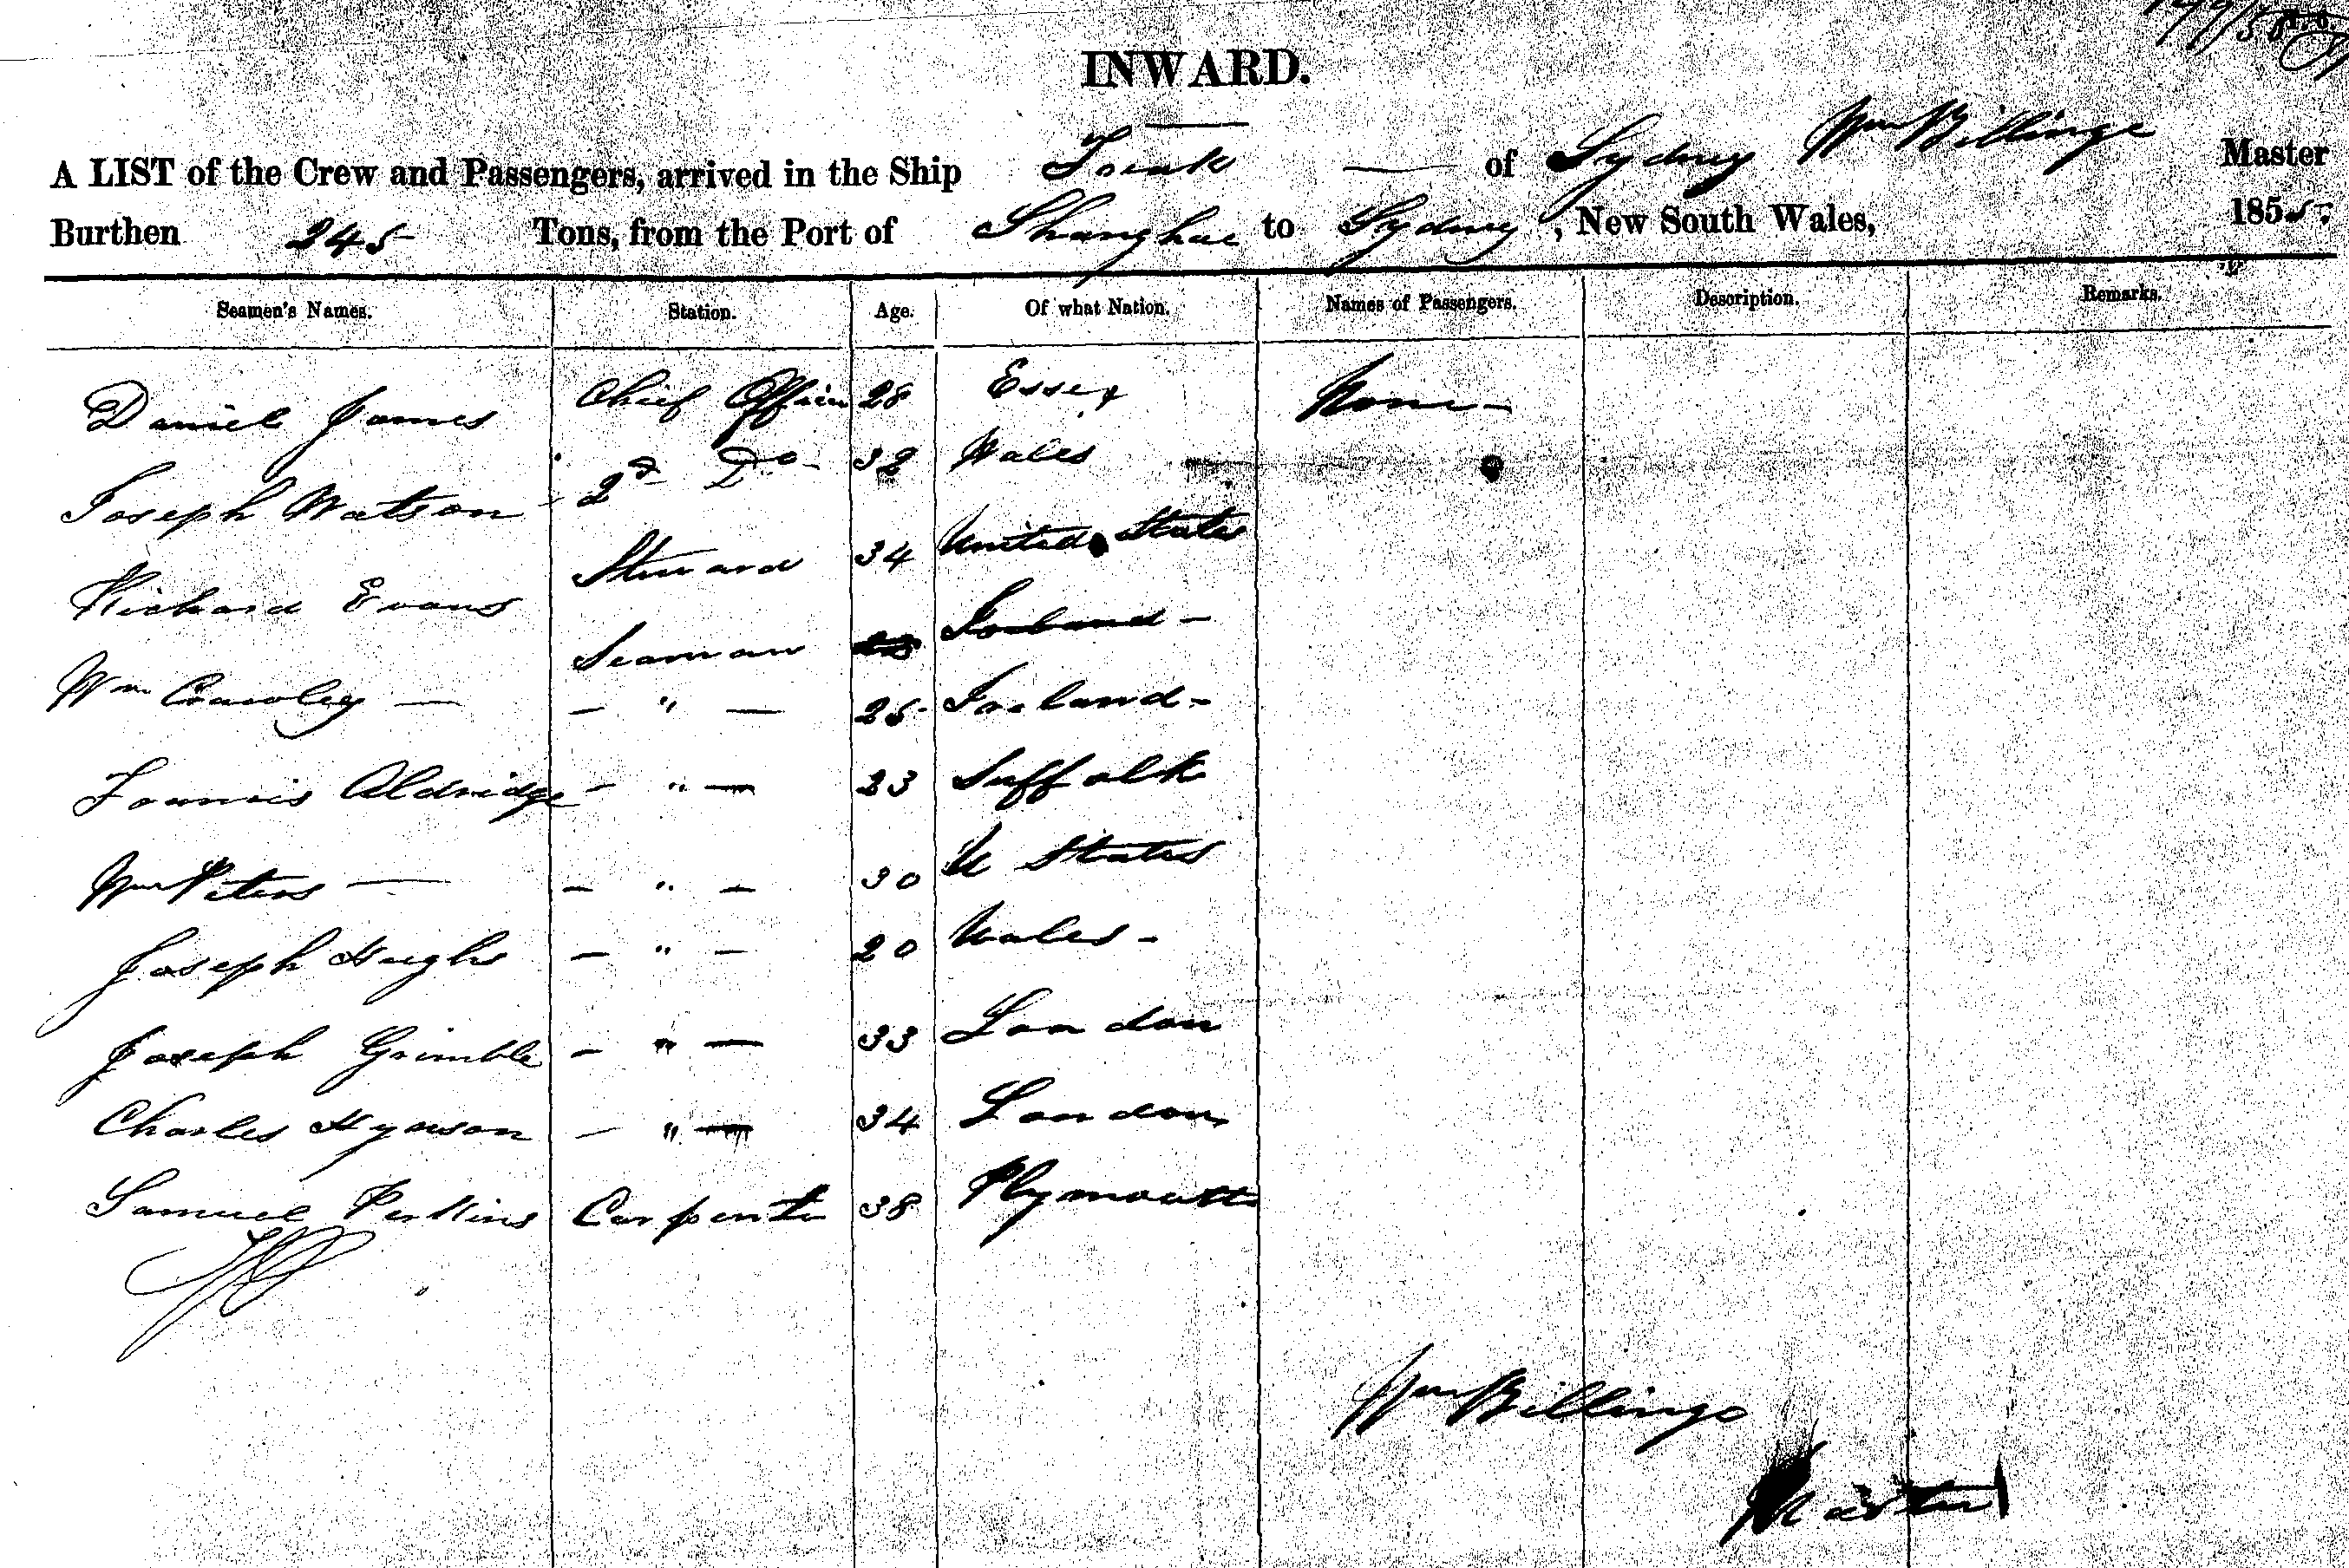 INWARD.
A LIST of the Crew and Passengers, arrived in the Ship — of Sydney Wm Billinge Master
Burthen 245 Tons, from the Port of Shanghae to Sydney, New South Wales, 1855.
Seamen's Names. Station. Age. Of what Nation. Names of Passengers. Description. Remarks.
Daniel James Chief Officer 28 Essex None —
Joseph Watson 2d Do 32 Wales
Richard Evans Steward 34 United States
Wm Crawley — Seaman Ireland —
— " — 25 Ireland —
Francis Aldridge — " — 23 Suffolk
Wm Peters — — " — 30 U States
Joseph Hughs — " — 20 Wales —
Joseph Grimble — " — 33 London
Charles Hynson — " — 34 London
Samuel Perkins Carpenter 38 Plymouth
Wm Billinge
Master